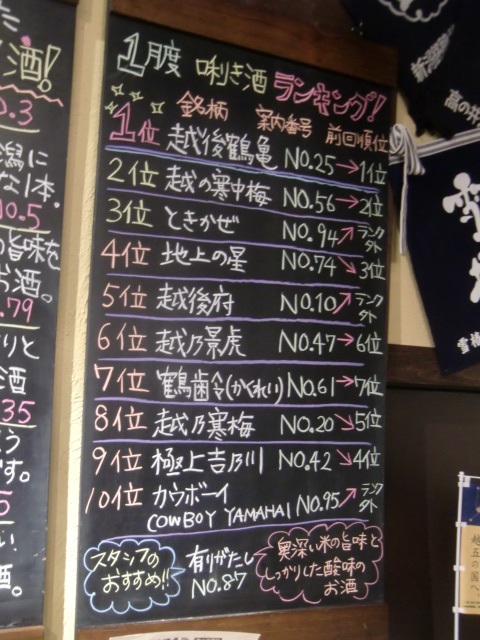 た
酒!
0.3
潟に
な1本。
0.5
の旨味を
お酒。
.79
りと
酒
35
う
です。
5
い
酒。
1月度 唎き酒 ランキング!
銘柄 案内番号 前回順位
1位 越後鶴亀 NO.25→1位
2位 越の寒中梅 NO.56→2位
3位 ときかぜ NO.94↗ランク外
4位 地上の星 NO.74↘3位
5位 越後府 NO.10↗ランク外
6位 越乃景虎 NO.47→6位
7位 鶴齢(かくれい) NO.61→7位
8位 越乃寒梅 NO.20↘5位
9位 極上吉乃川 NO.42↘4位
10位 カウボーイ
COWBOY YAMAHAI NO.95↗ランク外
スタッフの
おすすめ!!
有りがたし
NO.87
奥深い米の旨味と
しっかりした酸味の
お酒
高の井
雪
越五の国へ